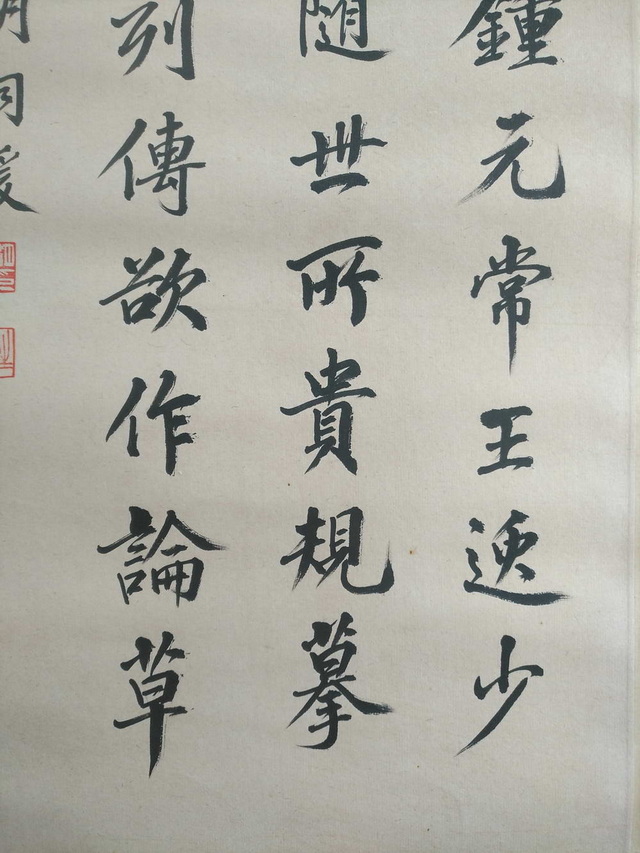 鍾元常王逸少
隨世所貴規摹
列傳欲作論草
月同爰